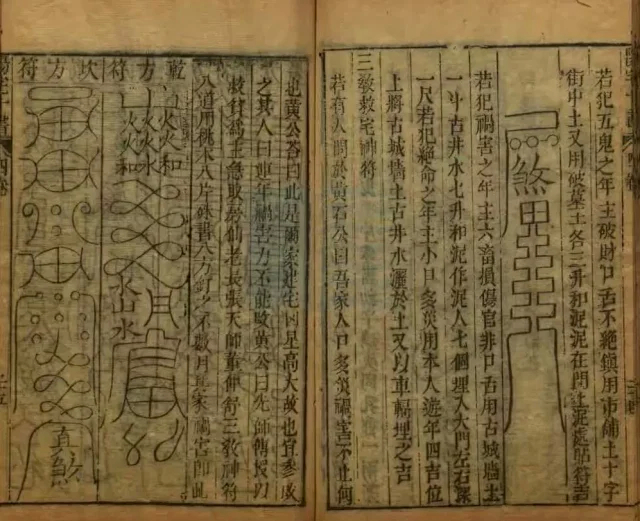 若犯五鬼之年主破財口舌不絶鎮用市鋪土十字
街中土又用破墓土各三升和泥泥在門上泥處貼符吉
煞
若犯禍害之年主六畜損傷官非口舌用古城墻土
一斗古井水七升和泥作泥人七個埋入大門左右深
一尺若犯絶命之年主小口多災用本人遊年四吉位
上將古城墻土古井水灑於土又以車輻埋之吉
三教救宅神符
若有人問於黄石公曰吾家人口多災禍害不止何
也黄公答曰此是爾家建宅凶星高大故也宜參成
之其人曰連年禍害力不能敗黄公曰先師傳授以
救貧爲主急取嵩仙老長張天師董仲舒三教神符
八道用桃木八片硃書八方釘之不數月其家禍害即止
乾方符
坎方符
火火水
火火和
月
水山水
真煞
四卷